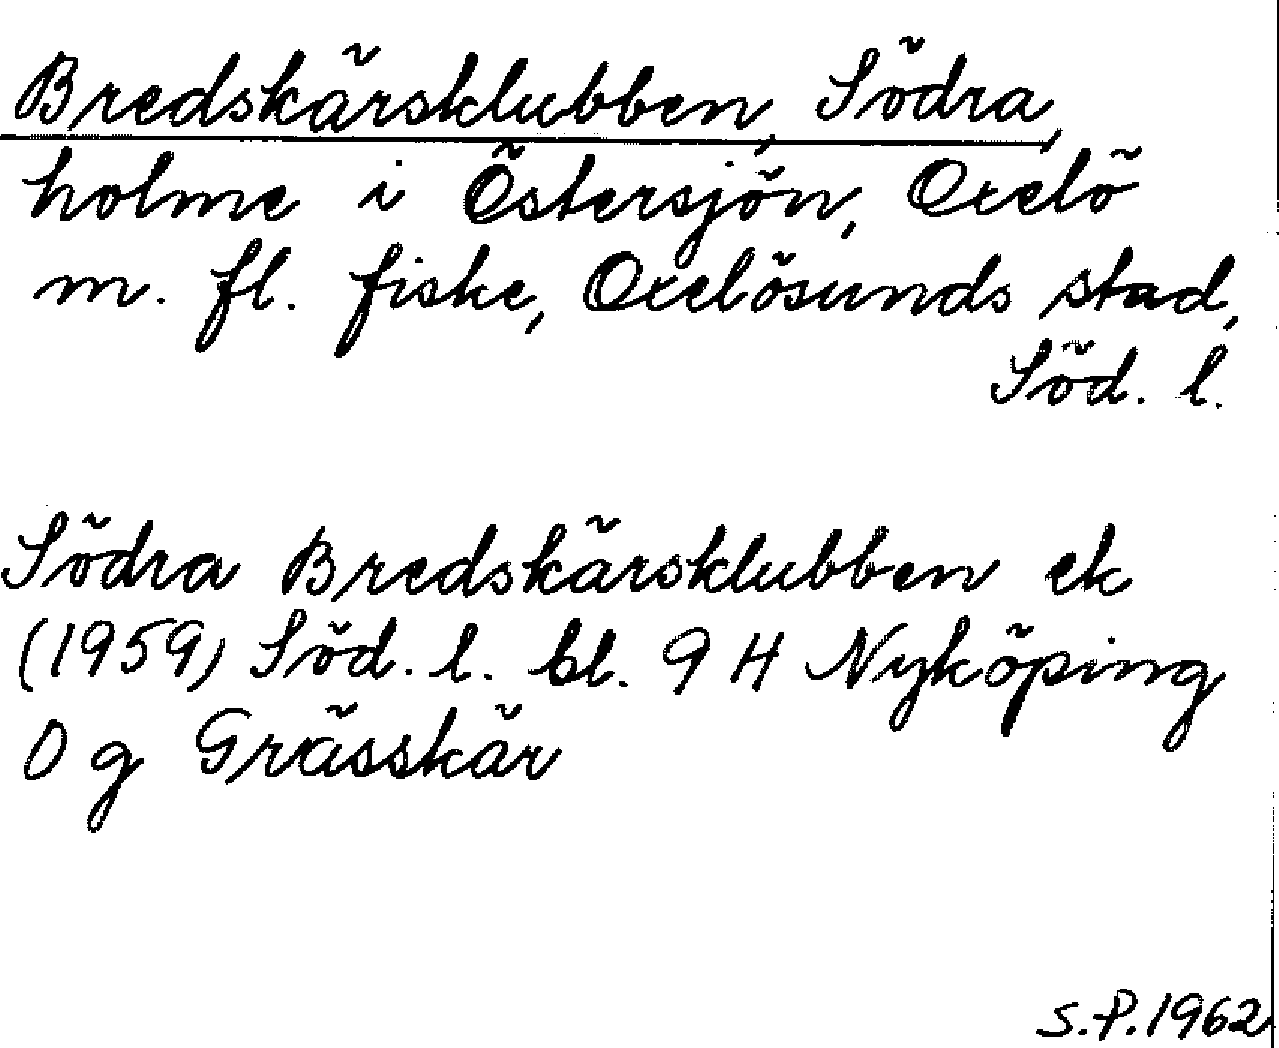 Bredskärsklubben, Södra,
holme i Östersjön, Oxelö
m. fl. fiske, Oxelösunds stad,
Söd. l.
Södra Bredskärsklubben ek
(1959) Söd. l. bl. 9 H Nyköping
O g Grässkär
S.P.1962